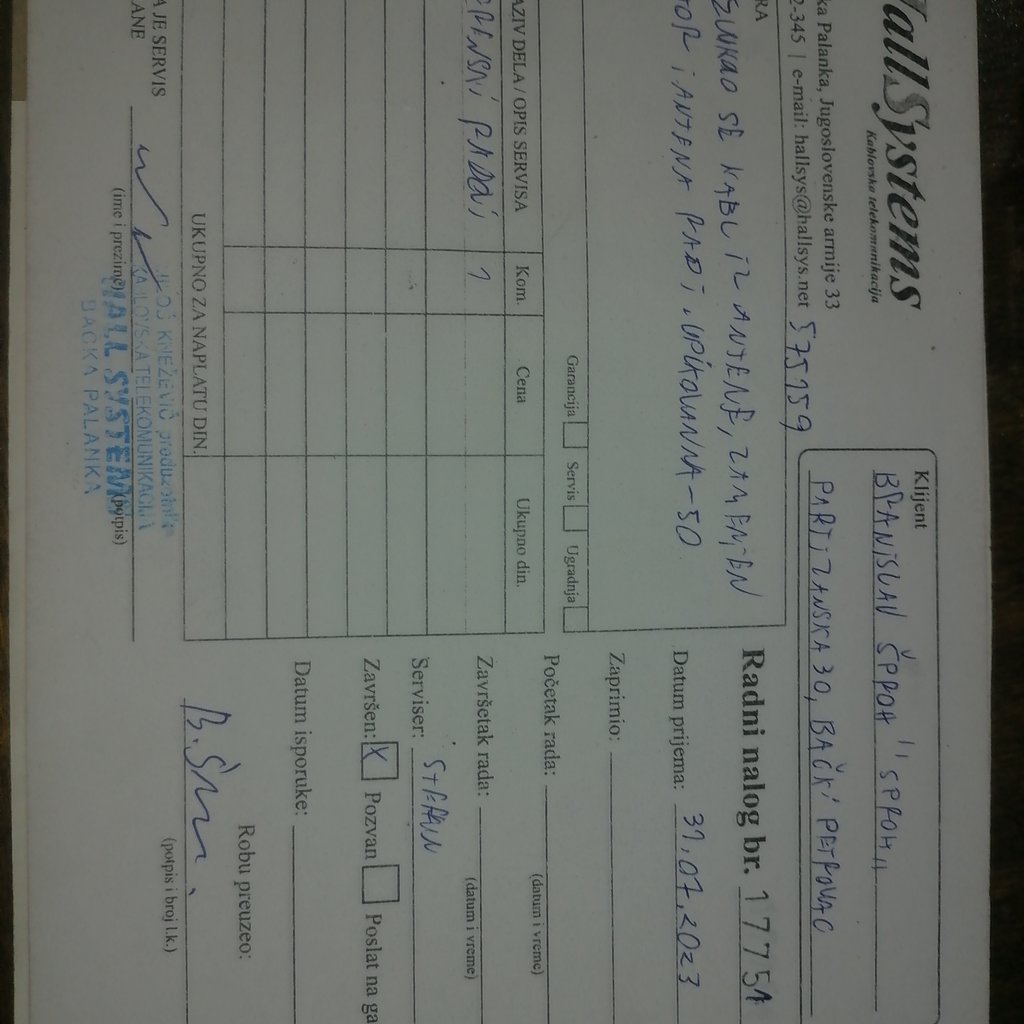 HallSystems
Kablovska telekomunikacija
ka Palanka, Jugoslovenske armije 33
2-345 | e-mail: hallsys@hallsys.net 575159
Klijent
BRANISLAV ŠPROH "SPROH"
PARTIZANSKA 30, BAČKI PETROVAC
SE KABL IZ ANTENE, ZAMENJEN
TOR I ANTENA RADI
-50
Garancija Servis Ugradnja
AZIV DELA / OPIS SERVISA Kom. Cena Ukupno din.
RADOVI 1
UKUPNO ZA NAPLATU DIN.
Radni nalog br. 17751
Datum prijema: 31.07.2023
Zaprimio:
Početak rada:
(datum i vreme)
Završetak rada:
(datum i vreme)
Serviser: STEFAN
Završen: X Pozvan Poslat na ga
Datum isporuke:
A JE SERVIS
ANE
(ime i prezime) (potpis)
KNEŽEVIĆ preduzetnik
KABLOVSKA TELEKOMUNIKACIJA
HALL SYSTEMS
BAČKA PALANKA
Robu preuzeo:
(potpis i broj l.k.)